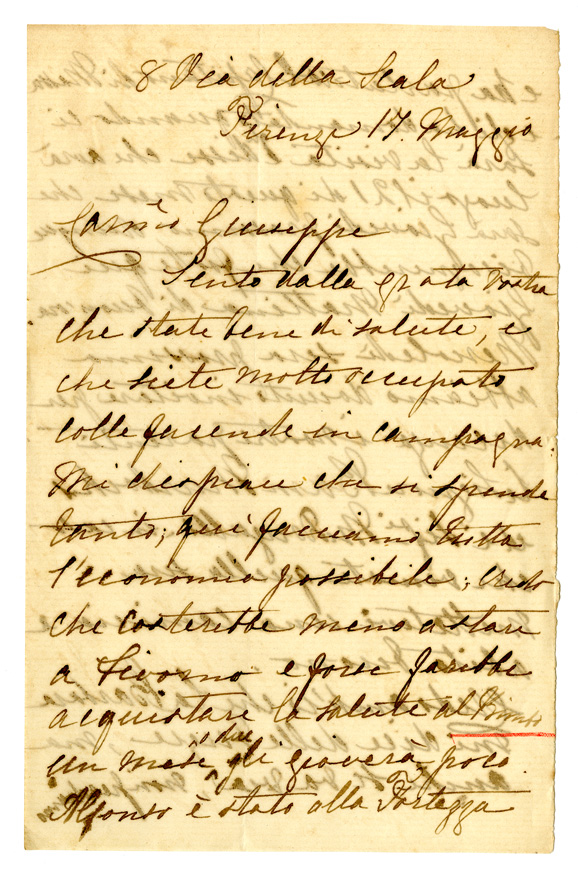 8 Via della Scala
Firenze 17. Maggio
Carmo Giuseppe
Sento dalla grata vostra
che state bene di salute, e
che siete molto occupato
colle facende in campagna.
Mi dispiace che si spende
tanto; qui facciamo tutta
l'economia possibile; credo
che costerebbe meno a stare
a Livorno e forse farebbe
acquistare la salute al Bimbo
un mese o due gli gioverà poco.
Alfonso è stato alla Fortezza